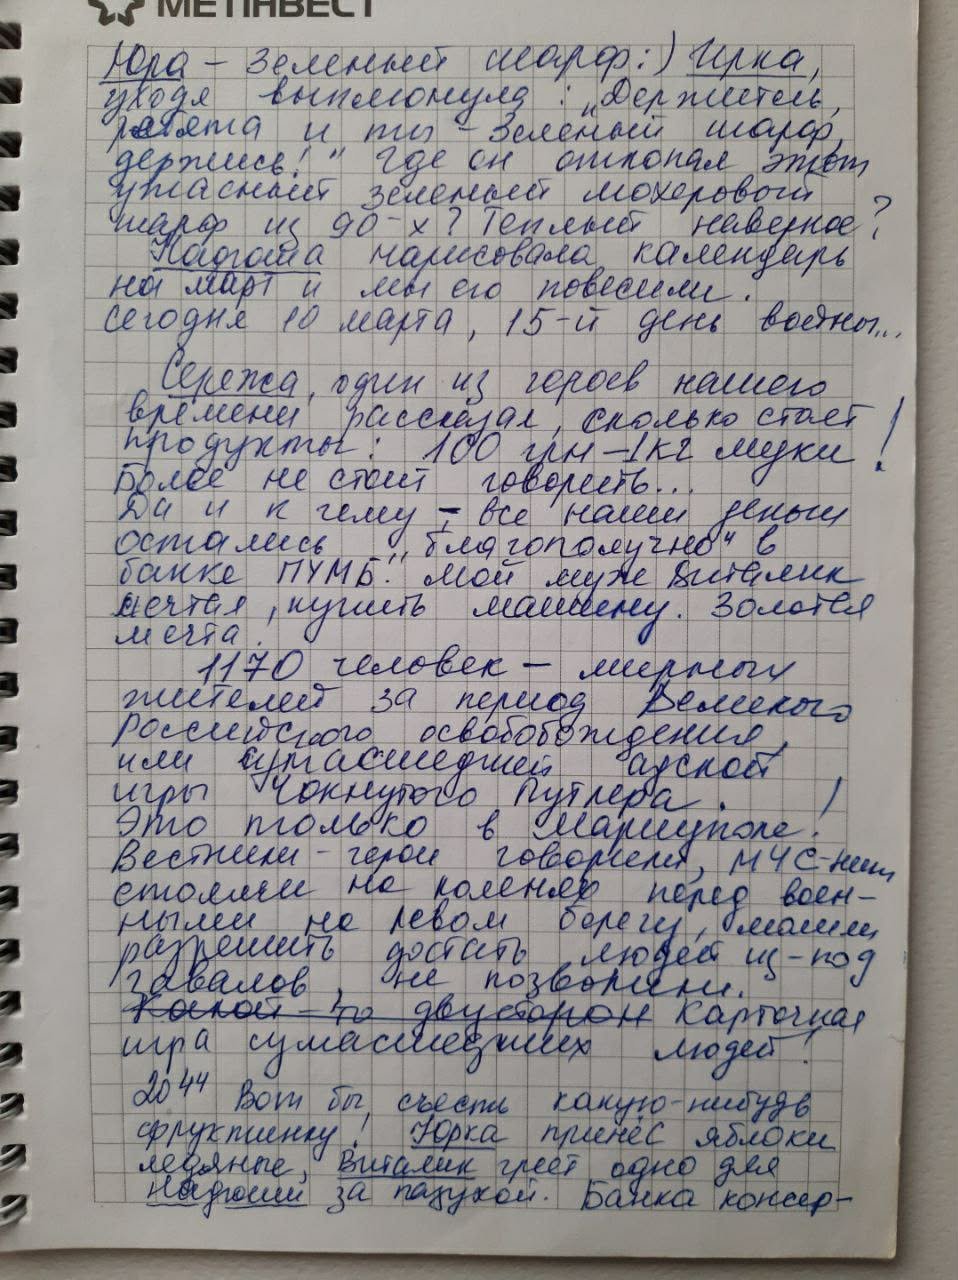 МЕТІНВЕСТ
Юра – зеленый шарф:) Ирка,
уходя выплюнула: „Держитесь,
ребята и ты – зеленый шарф,
держись!" Где он откопал этот
ужасный зеленый мохеровый
шарф из 90-х? Теплый наверное?
Надюша нарисовала календарь
на март и мы его повесили.
Сегодня 10 марта, 15-й день войны...
Сережа, один из героев нашего
времени рассказал, сколько стоят
продукты: 100 грн – 1 кг муки!
Более не стоит говорить...
Да и к чему – все наши деньги
остались „благополучно" в
банке ПУМБ. Мой муж Виталик
мечтал, купить машину. Золотая
мечта.
1170 человек – мирных
жителей за период Великого
Российского освобобождения,
или сумасшедшей адской
игры Чокнутого Путлера.
Это только в Мариуполе!
Вестники-герои говорили, МЧС-ники
стояли на коленях перед воен-
ными на левом берегу, молили
разрешить достать людей из-под
завалов, не позволили.
Какой-то двусторон Карточная
игра сумасшедших людей!
20 44 Вот бы, съесть какую-нибудь
фруктинку! Юрка принёс яблоки
ледяные, Виталик греет одно для
Надюши за пазухой. Банка консер-